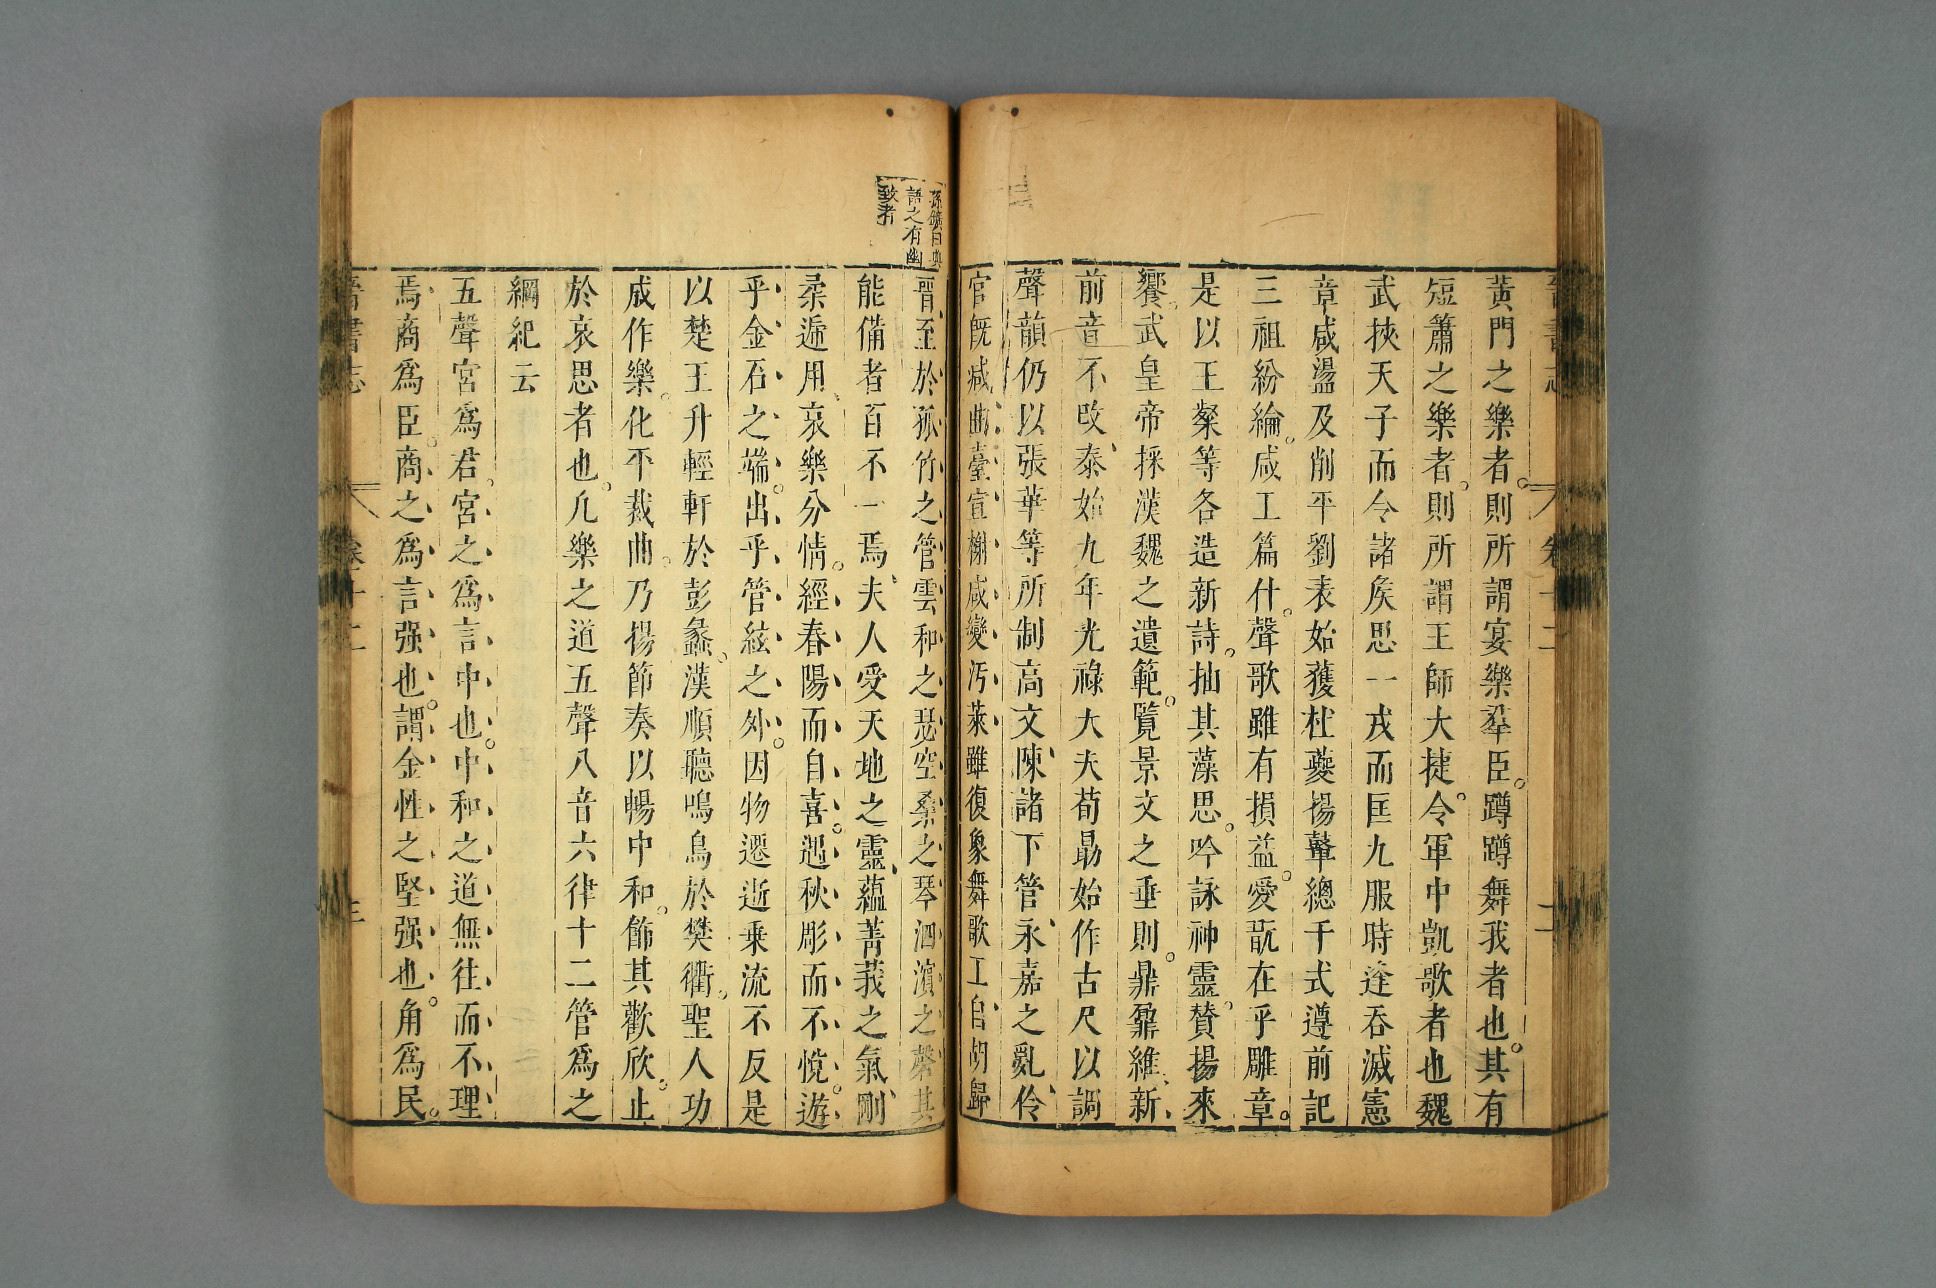 黃門之樂者則所謂宴樂羣臣蹲蹲舞我者也其有
短簫之樂者則所謂王師大捷令軍中凱歌者也魏
武挾天子而令諸矦思一戎而匡九服時逢吞滅憲
章咸盪及削平劉表始獲杜夔揚鞞總干式遵前記
三祖紛綸咸工篇什聲歌雖有損益愛翫在乎雕章
是以王粲等各造新詩抽其藻思吟詠神靈贊揚來
饗武皇帝採漢魏之遺範覧景文之垂則鼎鼐維新
前音不改泰始九年光祿大夫荀勗始作古尺以調
聲韻仍以張華等所制高文陳諸下管永嘉之亂伶
官旣减曲臺宣榭咸變汚萊雖復象舞歌工自胡歸
孫鑛曰典
語之有幽
致者
晉至於孤竹之管雲和之瑟空桑之琴泗濵之磬其
能備者百不一焉夫人受天地之靈蘊菁莪之氣剛
柔遞用哀樂分情經春陽而自喜遇秋彫而不悅遊
乎金石之端出乎管絃之外因物遷逝乗流不反是
以楚王升輕軒於彭蠡漢順聽鳴鳥於樊衢聖人功
成作樂化平裁曲乃揚節奏以暢中和飾其歡欣止
於哀思者也凡樂之道五聲八音六律十二管爲之
綱紀云
五聲宮爲君宮之爲言中也中和之道無往而不理
焉商爲臣商之爲言强也謂金性之堅强也角爲民
晉書志
卷二十二
三